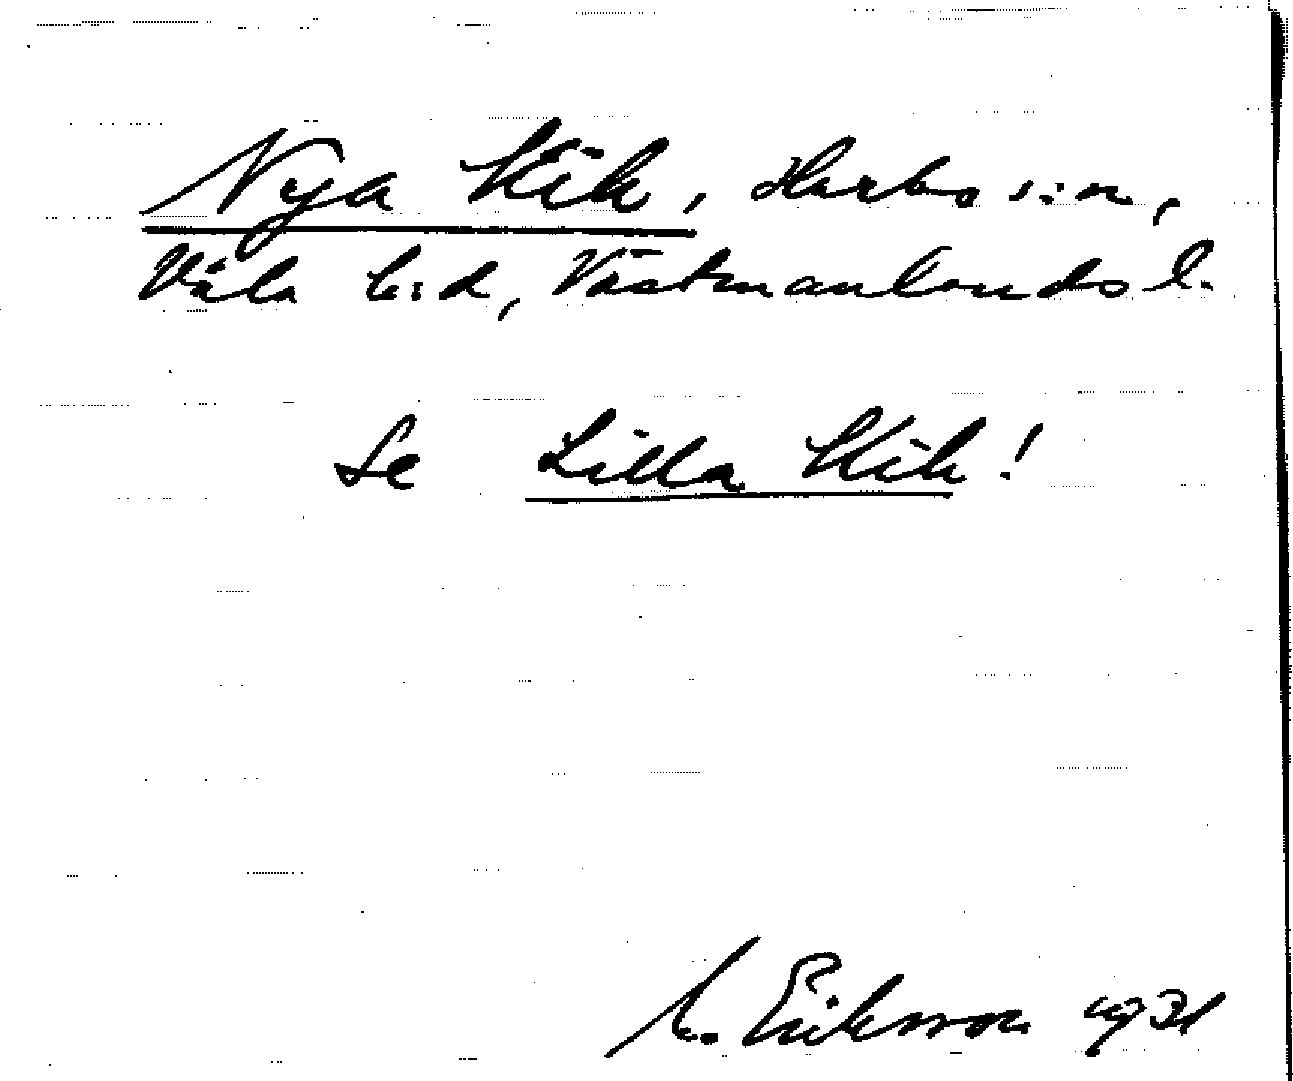 Nya Kik, Harbo s:n,
Våla h:d, Västmanlands l.
Se Lilla Kik!
M. Eriksson 1931